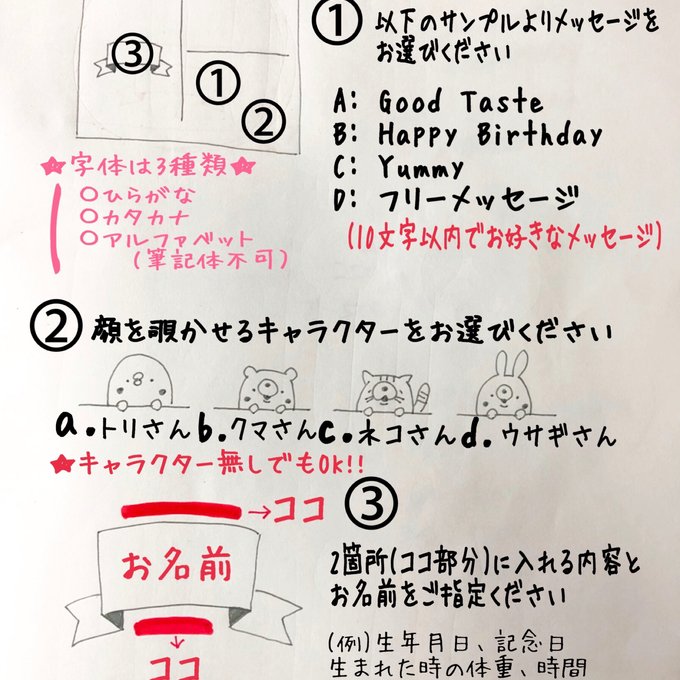 ③
①
②
① 以下のサンプルよりメッセージを
お選びください
A: Good Taste
B: Happy Birthday
C: Yummy
D: フリーメッセージ
(10文字以内でお好きなメッセージ)
★字体は3種類★
○ひらがな
○カタカナ
○アルファベット
(筆記体不可)
② 顔を覗かせるキャラクターをお選びください
a.トリさん b.クマさん c.ネコさん d.ウサギさん
★キャラクター無しでもOK!!
→ココ
お名前
↓
ココ
③
2箇所(ココ部分)に入れる内容と
お名前をご指定ください
(例)生年月日、記念日
生まれた時の体重、時間